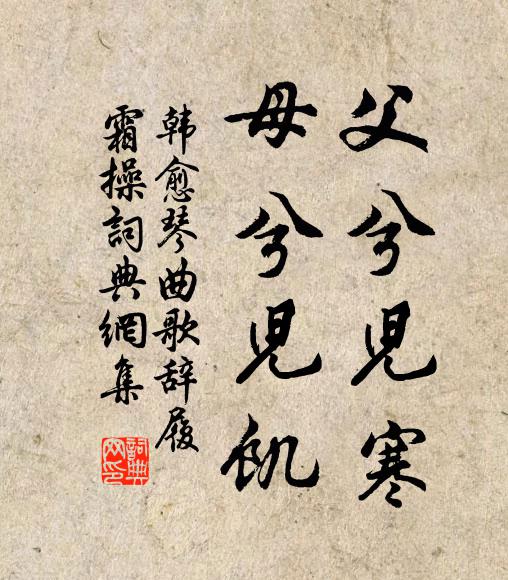 父兮兒寒
母兮兒飢
韩愈琴曲歌辞履
霜操詞典網集
詞典网印